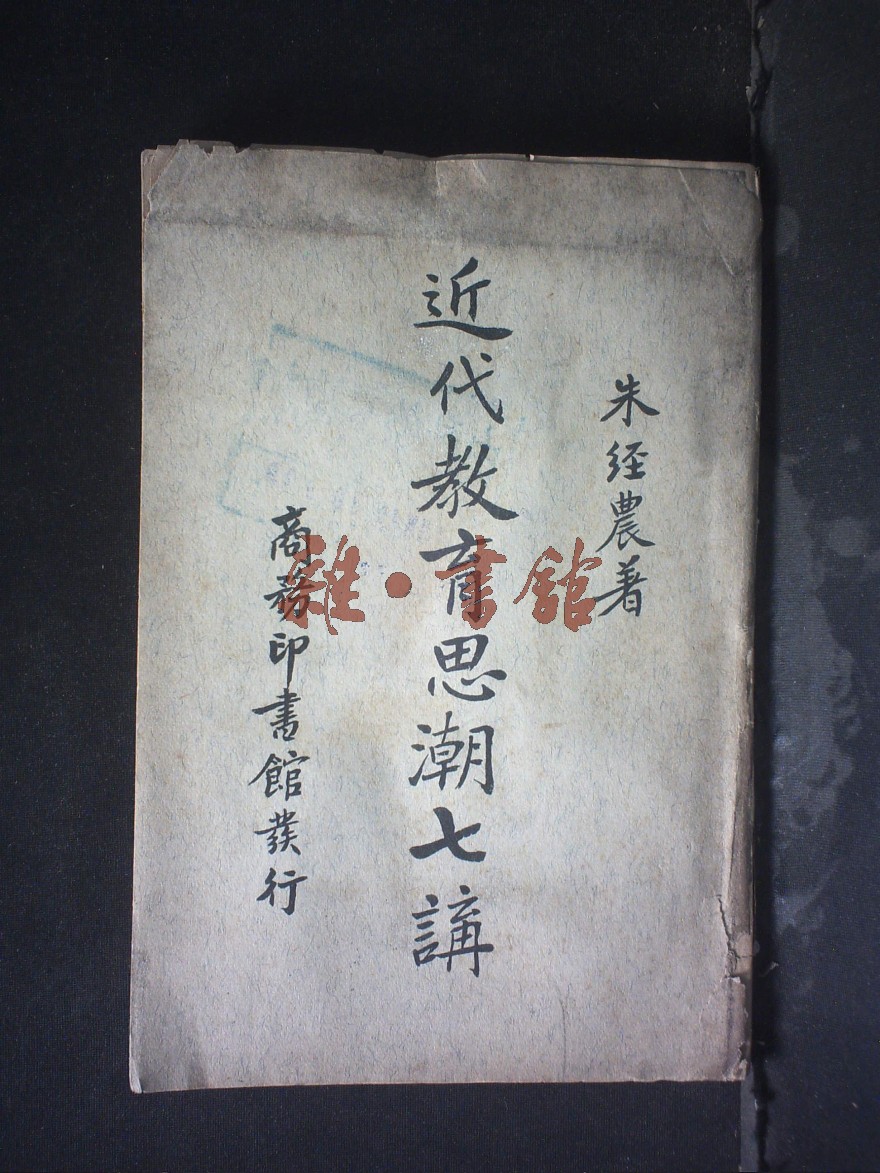 朱经農著
近代教育思潮七講
商務印書館發行
雜·書館